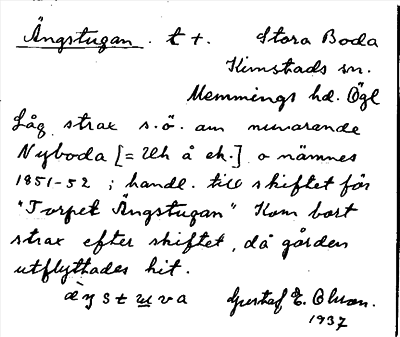 Ängstugan. t +. Stora Boda
Kimstads sn.
Memmings hd. Ögl
Låg strax s.ö. om nuvarande
Nyboda [= Uh å ek.] o nämnes
1851-52 i handl. till skiftet för
"Torpet Ängstugan" Kom bort
strax efter skiftet, då gården
utflyttades hit.
Gustaf E. Olsson.
1937